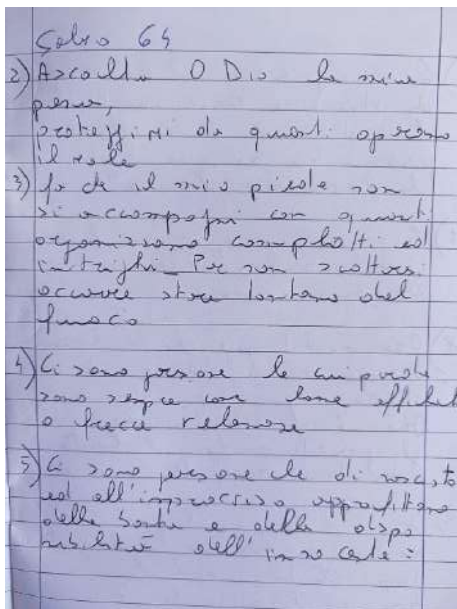 Salmo 64
2) Ascolta O Dio le mie
pene,
proteggimi da quanti operano
il male
3) fa che il mio piede non
si accompagni con quanti
organizzano complotti ed
intrighi. Per non scottarsi
occorre stare lontano dal
fuoco
4) Ci sono persone le cui parole
sono come lame affilate
o frecce velenose
5) Ci sono persone che di nascosto
ed all'improvviso approfittano
della bontà e della dispo
nibilità dell'innocente: